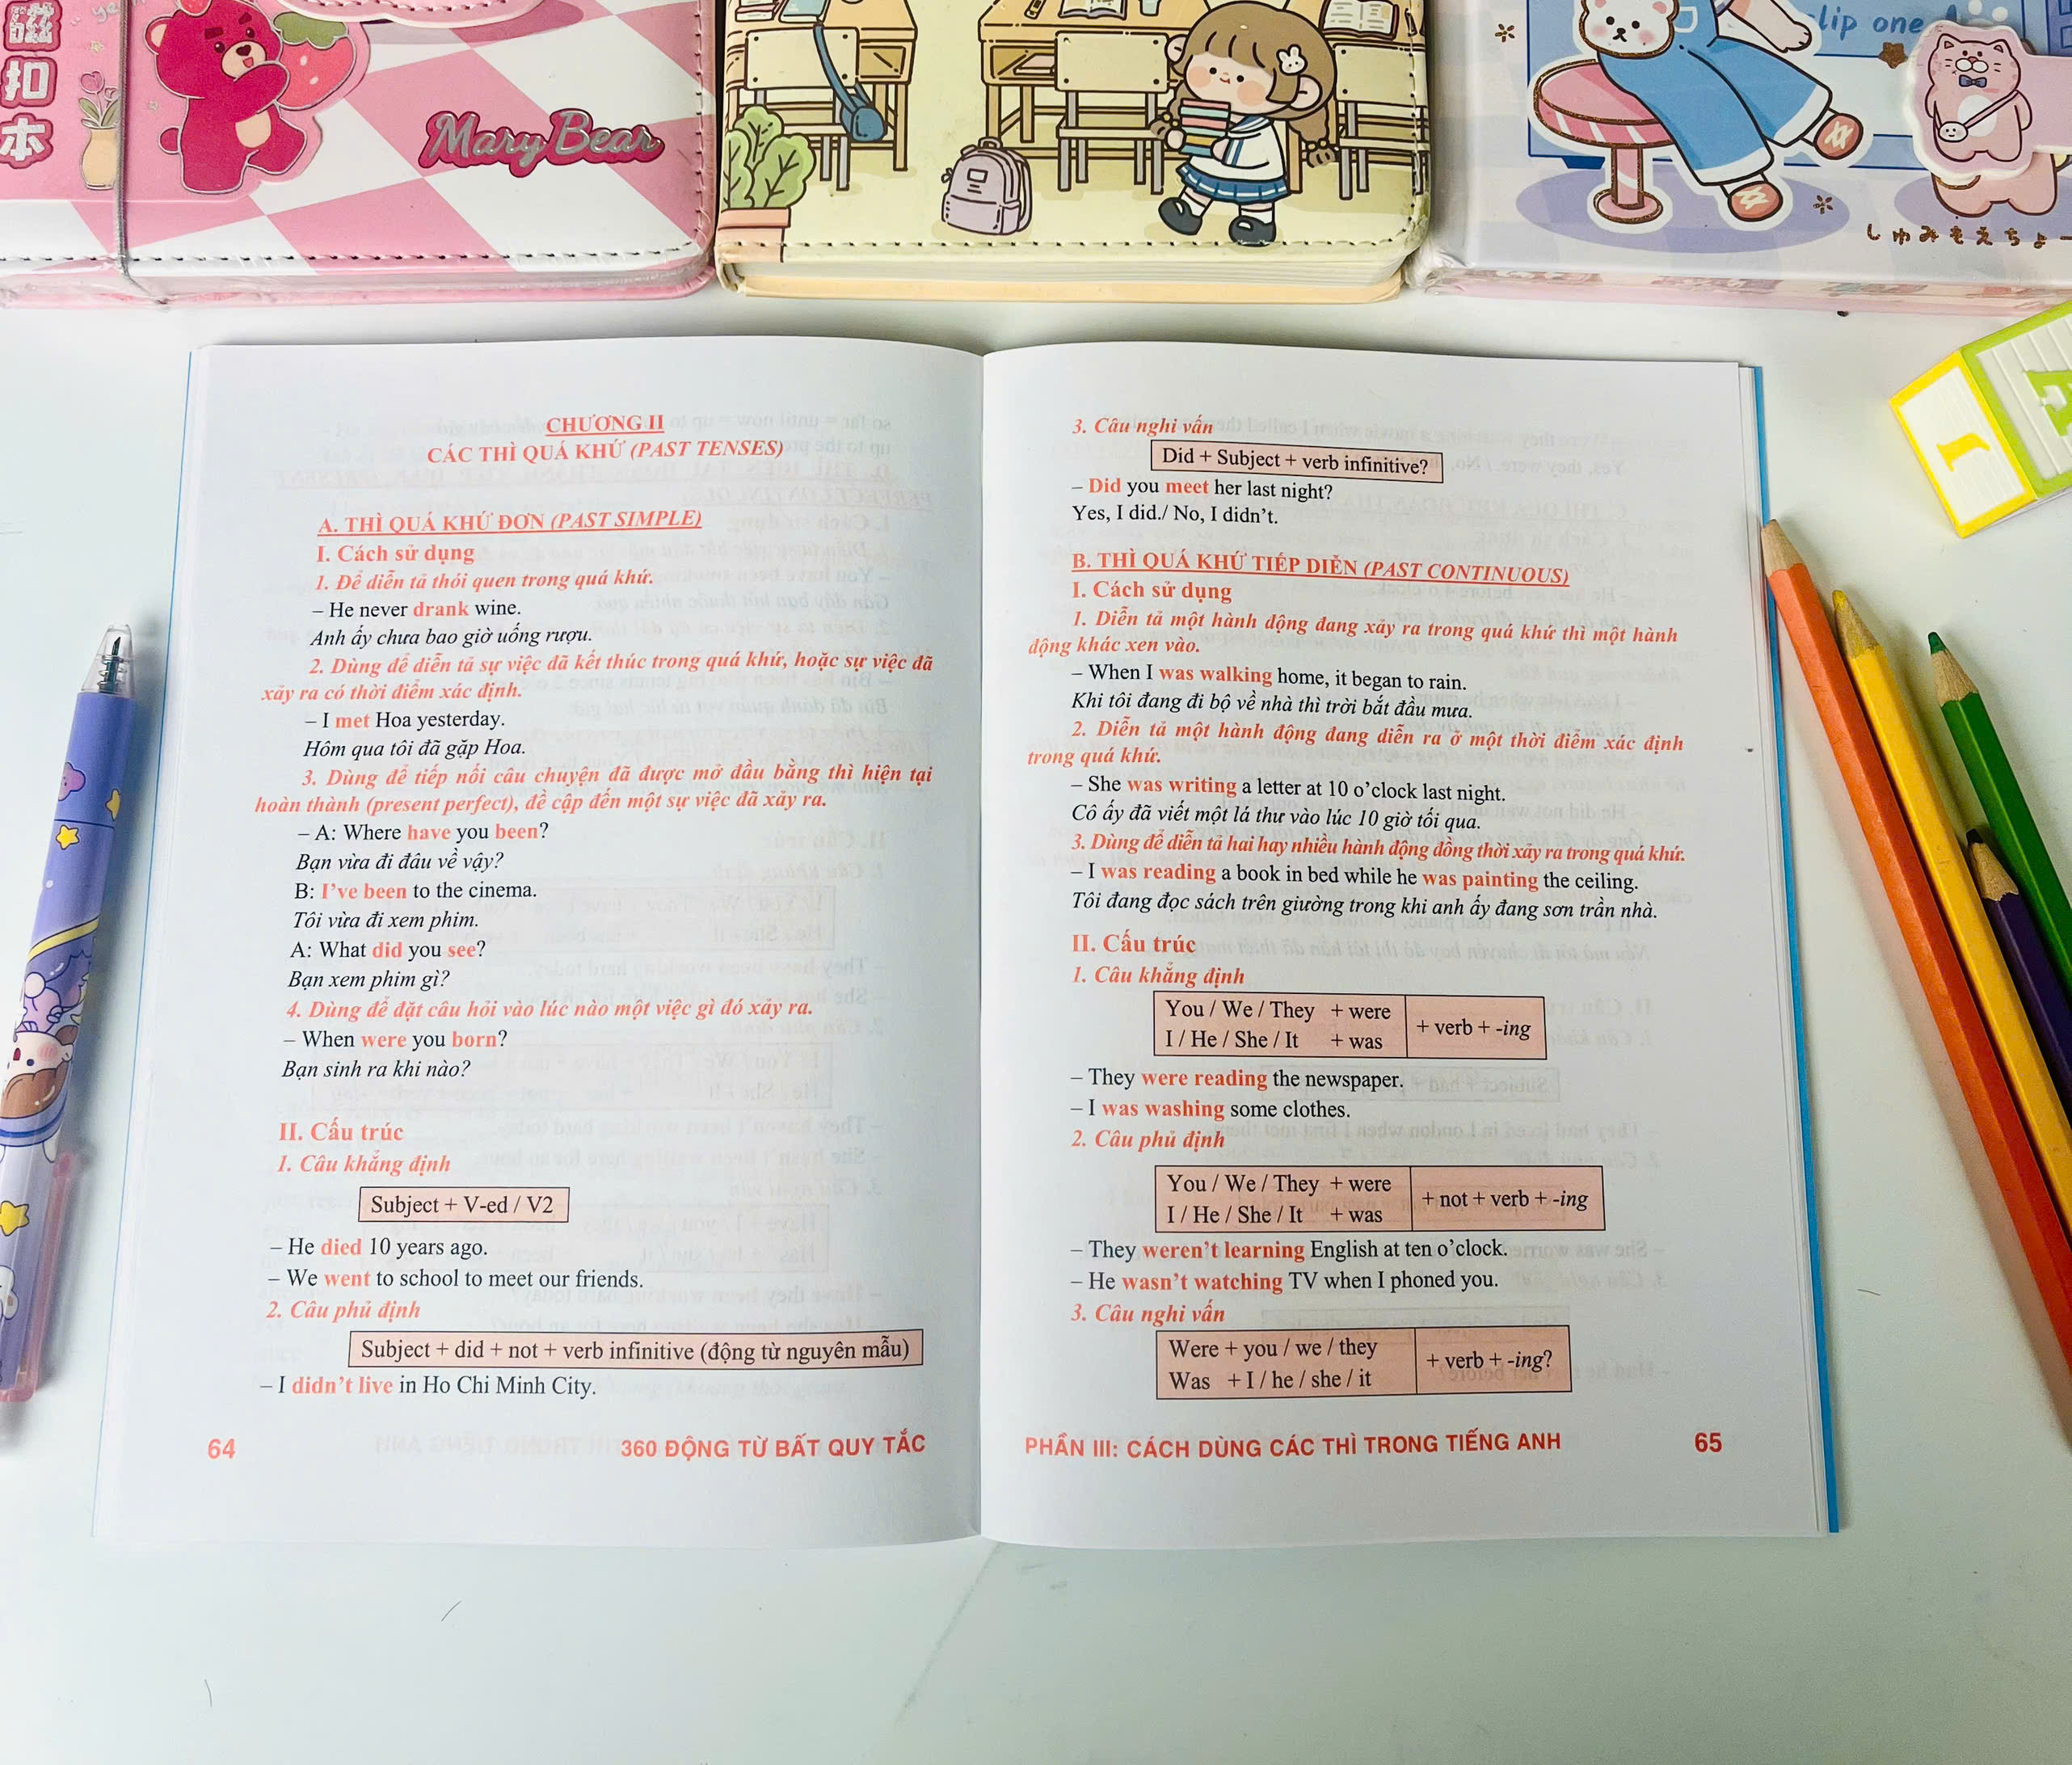 磁
扣
本
Mary Bear
slip one
しゅみもえちょー
CHƯƠNG II
CÁC THÌ QUÁ KHỨ (PAST TENSES)
A. THÌ QUÁ KHỨ ĐƠN (PAST SIMPLE)
I. Cách sử dụng
1. Để diễn tả thói quen trong quá khứ.
– He never drank wine.
Anh ấy chưa bao giờ uống rượu.
2. Dùng để diễn tả sự việc đã kết thúc trong quá khứ, hoặc sự việc đã
xảy ra có thời điểm xác định.
– I met Hoa yesterday.
Hôm qua tôi đã gặp Hoa.
3. Dùng để tiếp nối câu chuyện đã được mở đầu bằng thì hiện tại
hoàn thành (present perfect), đề cập đến một sự việc đã xảy ra.
– A: Where have you been?
Bạn vừa đi đâu về vậy?
B: I've been to the cinema.
Tôi vừa đi xem phim.
A: What did you see?
Bạn xem phim gì?
4. Dùng để đặt câu hỏi vào lúc nào một việc gì đó xảy ra.
– When were you born?
Bạn sinh ra khi nào?
II. Cấu trúc
1. Câu khẳng định
Subject + V-ed / V2
– He died 10 years ago.
– We went to school to meet our friends.
2. Câu phủ định
Subject + did + not + verb infinitive (động từ nguyên mẫu)
– I didn't live in Ho Chi Minh City.
64
360 ĐỘNG TỪ BẤT QUY TẮC
3. Câu nghi vấn
Did + Subject + verb infinitive?
– Did you meet her last night?
Yes, I did./ No, I didn't.
B. THÌ QUÁ KHỨ TIẾP DIỄN (PAST CONTINUOUS)
I. Cách sử dụng
1. Diễn tả một hành động đang xảy ra trong quá khứ thì một hành
động khác xen vào.
– When I was walking home, it began to rain.
Khi tôi đang đi bộ về nhà thì trời bắt đầu mưa.
2. Diễn tả một hành động đang diễn ra ở một thời điểm xác định
trong quá khứ.
– She was writing a letter at 10 o'clock last night.
Cô ấy đã viết một lá thư vào lúc 10 giờ tối qua.
3. Dùng để diễn tả hai hay nhiều hành động đồng thời xảy ra trong quá khứ.
– I was reading a book in bed while he was painting the ceiling.
Tôi đang đọc sách trên giường trong khi anh ấy đang sơn trần nhà.
II. Cấu trúc
1. Câu khẳng định
You / We / They + were
I / He / She / It + was
+ verb + -ing
– They were reading the newspaper.
– I was washing some clothes.
2. Câu phủ định
You / We / They + were
I / He / She / It + was
+ not + verb + -ing
– They weren't learning English at ten o'clock.
– He wasn't watching TV when I phoned you.
3. Câu nghi vấn
Were + you / we / they
Was + I / he / she / it
+ verb + -ing?
PHẦN III: CÁCH DÙNG CÁC THÌ TRONG TIẾNG ANH
65
I